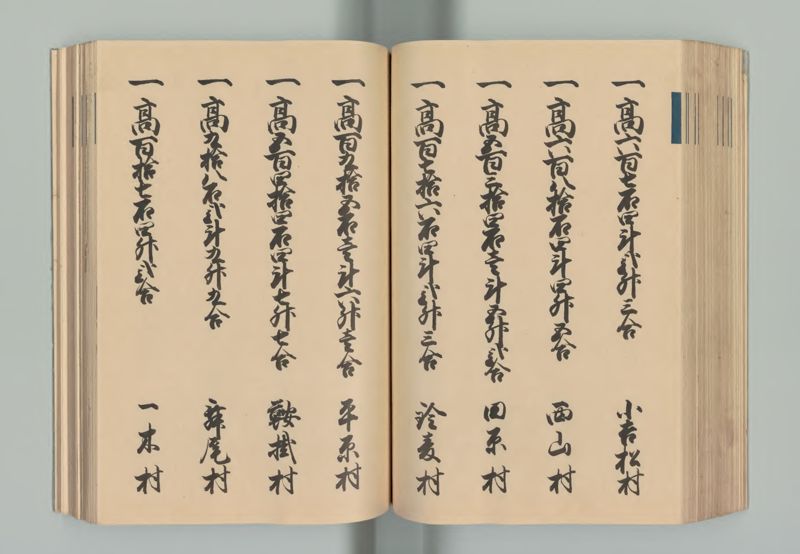 一高六百七石四斗弐升三合 小吉松村
一高六百八拾石四斗四升五合 西山村
一高五百三拾四石壱斗五升弐合 田原村
一高百三拾六石四斗弐升三合 玲麦村
一高百九拾五石壱斗六升壱合 平原村
一高五百四拾四石四斗七升七合 鞍掛村
一高九拾八石弐斗九升九合 舞尾村
一高百拾七石四升弐合 一木村